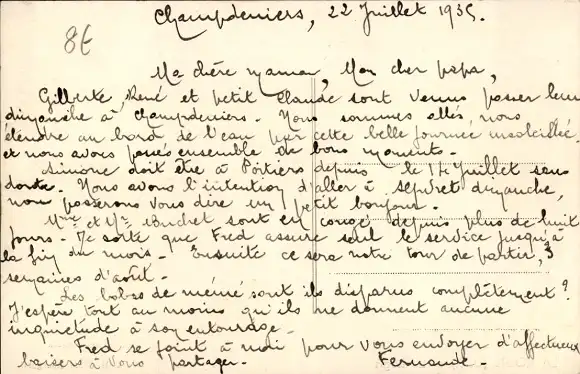 Champdeniers, 22 Juillet 1935.
8€
Ma chère maman, Mon cher papa,
Gilberte, René et petit Claude sont venus passer leur
dimanche à Champdeniers. Nous sommes allés, nous
étendre au bord de l'eau par cette belle journée ensoleillée
et nous avons passé ensemble de bons moments.
Simone doit être à Poitiers depuis le 14 Juillet sans
doute. Nous avons l'intention d'aller à Sepvret dimanche,
nous passerons vous dire un petit bonjour.
Mme et Mr sont en congé depuis plus de huit
jours. De sorte que Fred assure seul le service jusqu'à
la fin du mois. Ensuite ce sera notre tour de partir, 3
semaines d'août.
Les bobos de mémé sont ils disparus complètement ?
J'espère tout au moins qu'ils ne donnent aucune
inquiétude à son entourage.
Fred se joint à moi pour vous envoyer d'affectueux
baisers à vous partager.
Fernande.